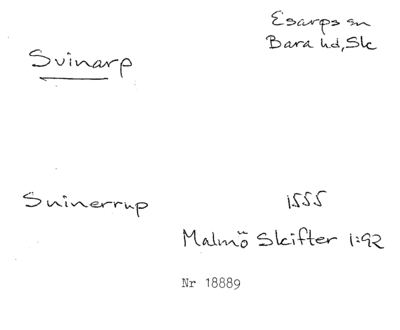 Esarps sn
Bara hd, Sk
Svinarp
Suinerrup
1555
Malmö Skifter 1:92
Nr 18889